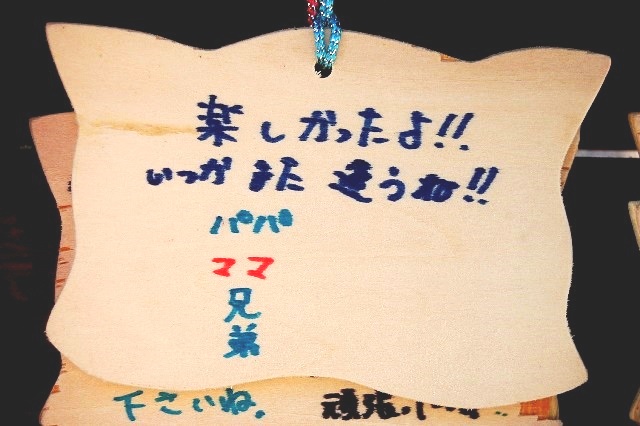 楽しかったよ!!
いつか また 逢うね!!
パパ
ママ
兄
弟
下さいね。 頑張